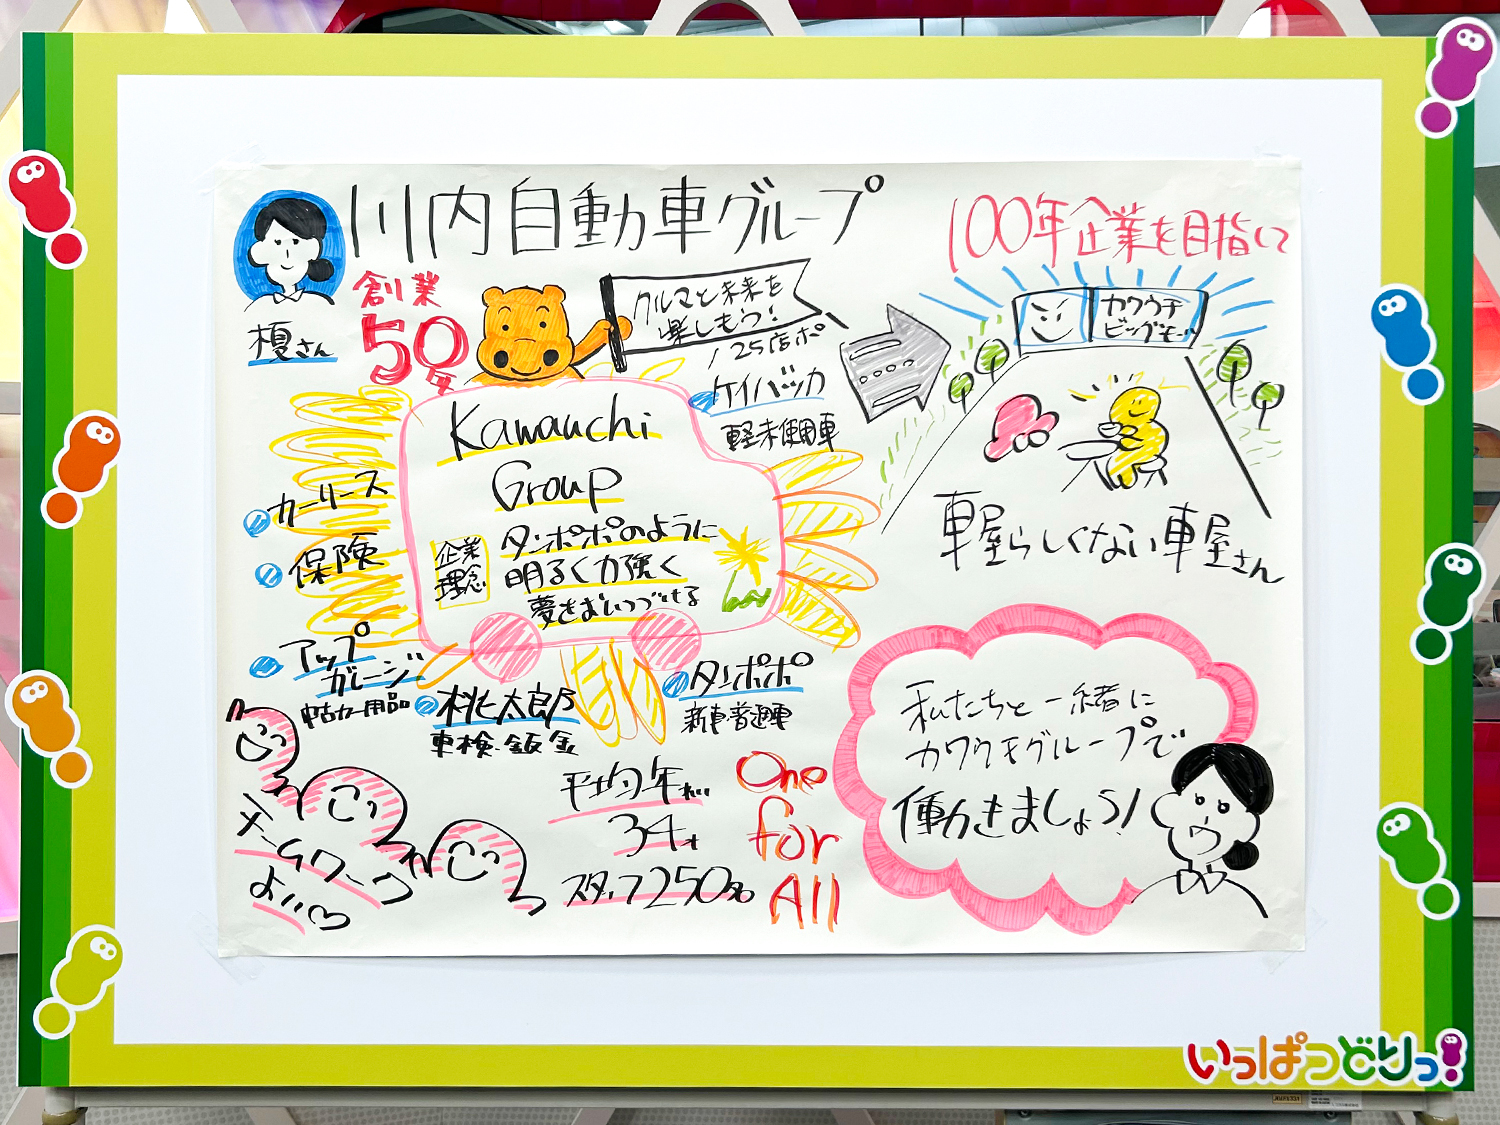 川内自動車グループ
榎さん
創業
50年
クルマと未来を
楽しもう!
125店ポ
ケイバッカ
軽未使用車
Kawauchi
Group
企業
理念
タンポポのように
明るく力強く
夢をおいつづける
カーリース
保険
アップ
ガレージ
中古カー用品
桃太郎
車検・鈑金
タンポポ
新車・普通車
チームワーク
よい
平均年れい
34才
スタッフ250名
One
for
All
100年企業を目指して
カワウチ
ビッグモール
車屋らしくない車屋さん
私たちと一緒に
カワウチグループで
働きましょう!
いっぱつどりっ!